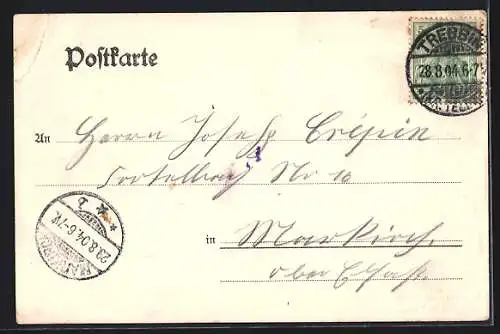 Postkarte
TREBBIN
28.8.04.6-7
An Herrn Joseph Crépin
Nr 10
in Markirch
Ober Elsaß.
29.8.04.6-7V.
b